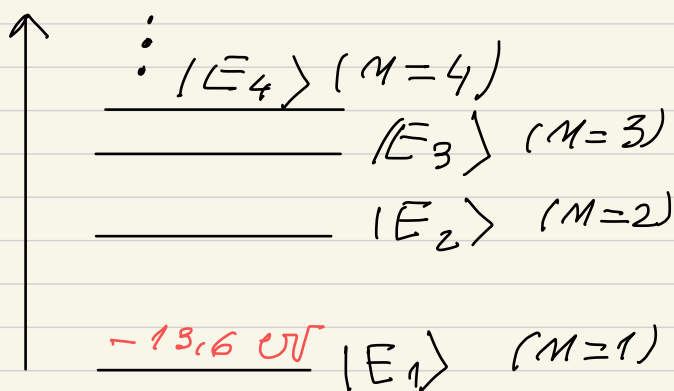 |E₄⟩ (n=4)
|E₃⟩ (n=3)
|E₂⟩ (n=2)
-13,6 eV |E₁⟩ (n=1)